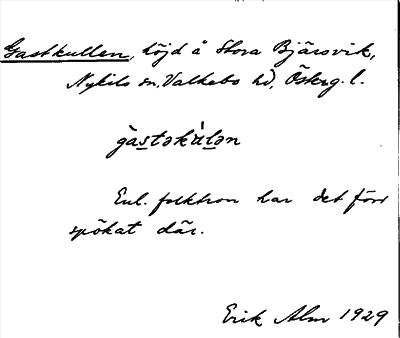 Gastkullen, höjd å Stora Bjärsvik,
Nykils sn, Valkebo hd, Östergl.
gàstəkúlən
Enl. folktron har det förr
spökat där.
Erik Alm 1929